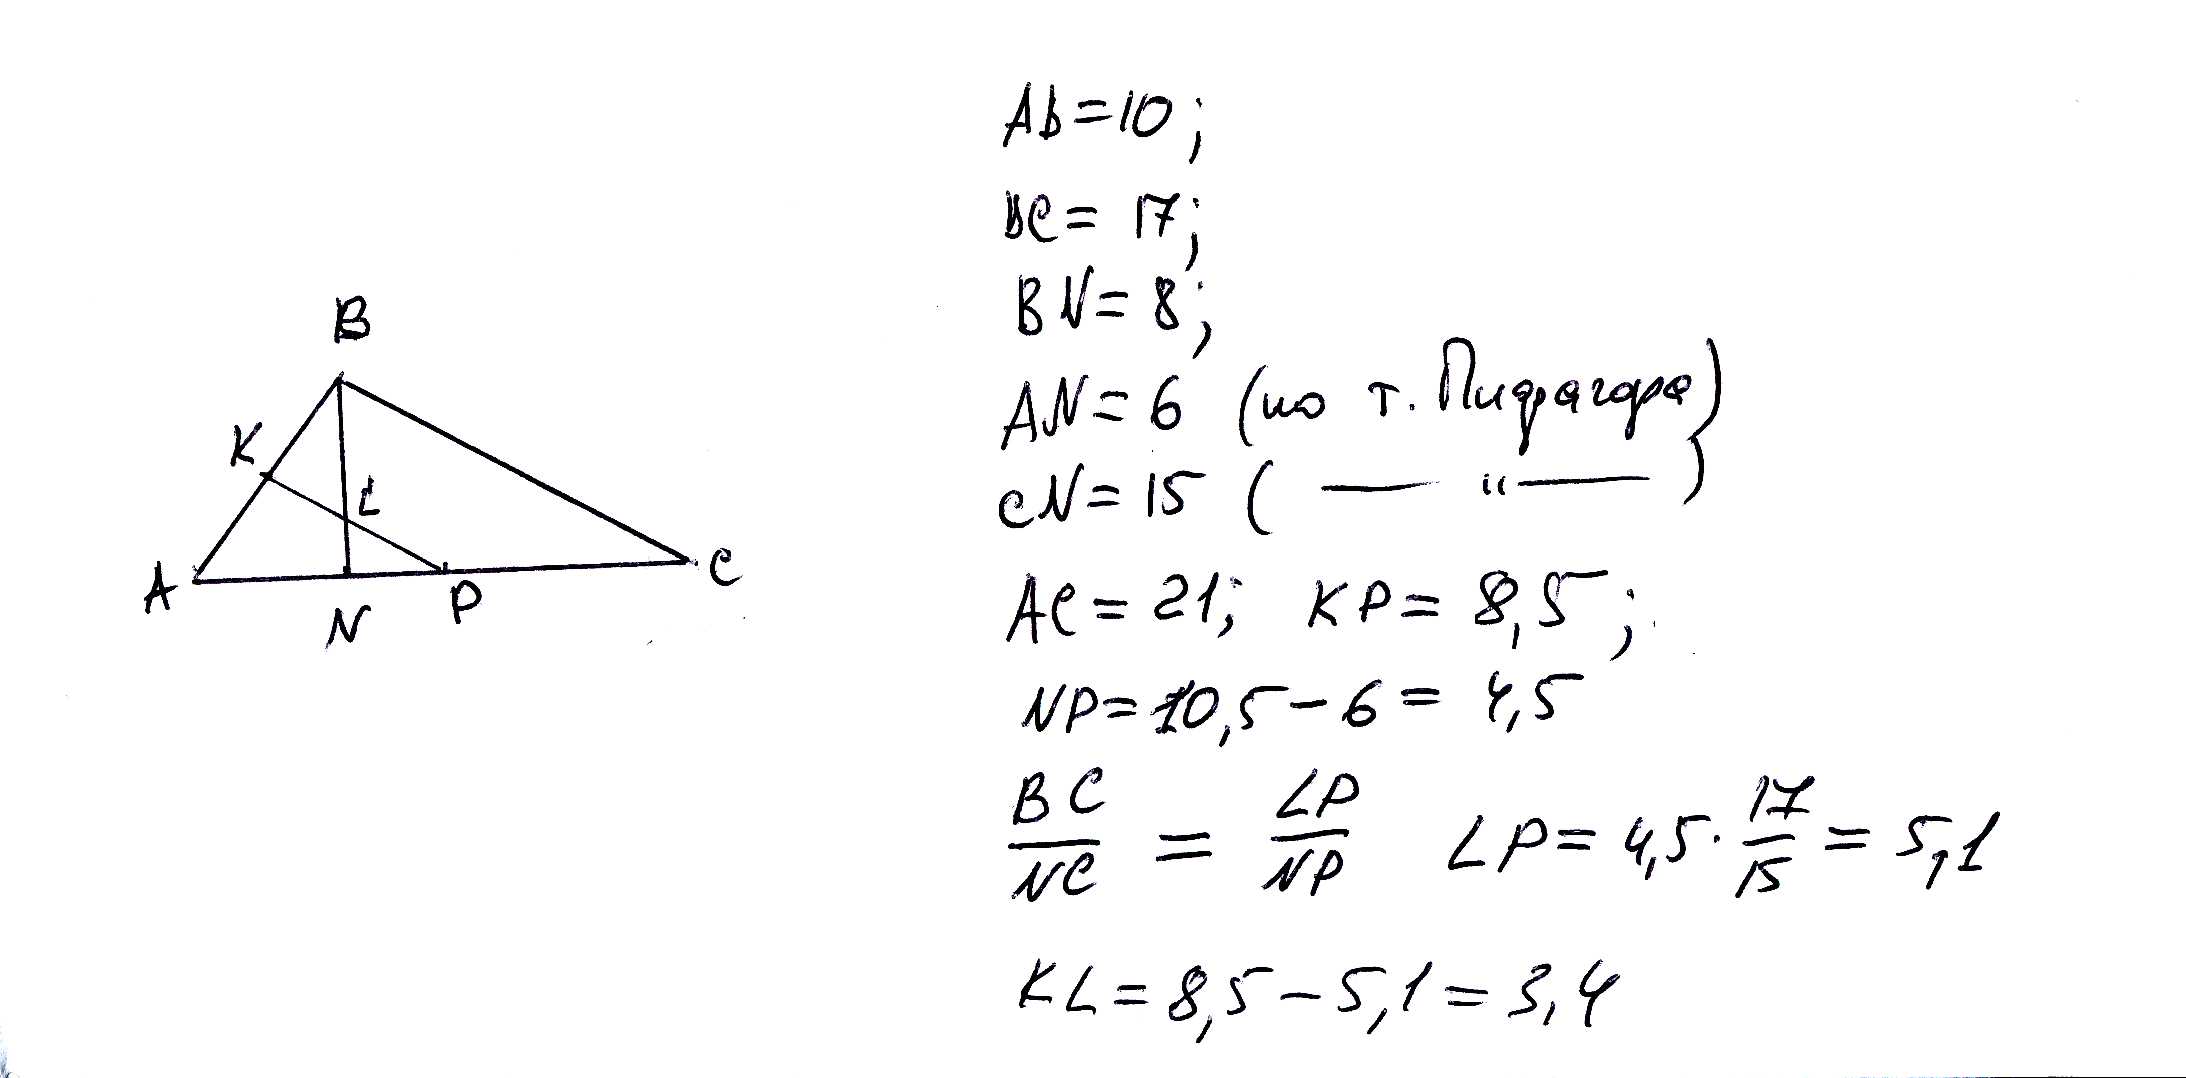 B
K
L
A
C
N
P
AB=10;
BC= 17;
BN= 8;
AN= 6 (по т. Пифагора)
CN= 15 ( — " — )
AC= 21; KP= 8,5;
NP= 10,5 - 6 = 4,5
BC/NC = LP/NP LP= 4,5 · 17/15 = 5,1
KL= 8,5 - 5,1 = 3,4